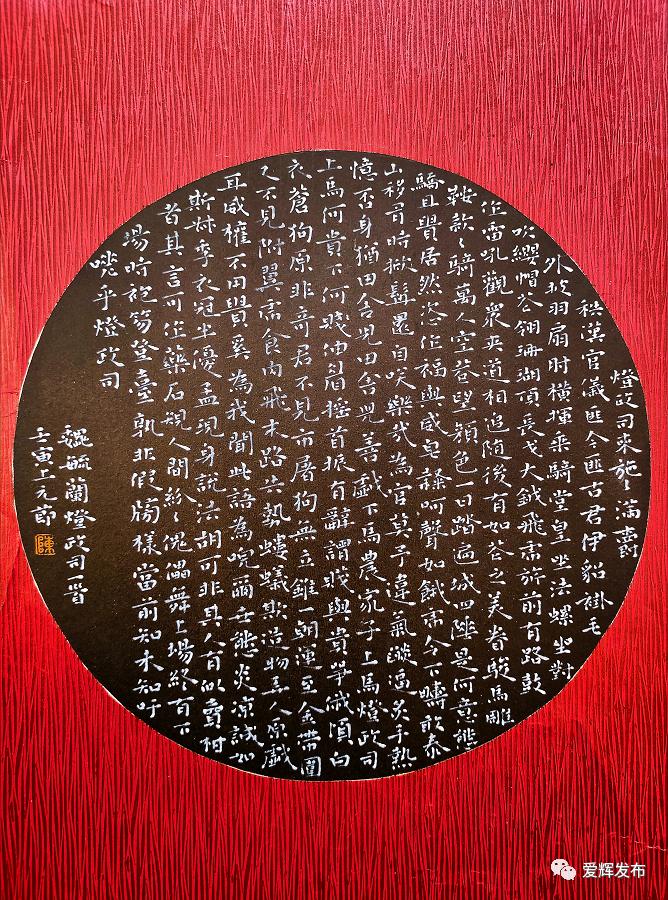 燈政司來施々滿爵
秩漢官儀匪今匪古君伊貂褂毛
外披羽扇肘橫揮乘騎堂皇坐法螺坐對
吹纓帽花翎珊瑚頂長戈大鉞飛虎旂前有路鼓
作雷吼觀眾夾道相追隨後有如花之美眷駿馬雕
鞍款々騎萬人空巷望顏色一日踏遍城四陲是何意態
驕且貴居然恣作福與威皂隸呵聲如餓虎令下疇敢泰
山移有時掀髯還自笑樂哉為官莫予違氣燄逼炙手熱
憶否身猶田舍兒田舍兒善戲下馬農家子上馬燈政司
上馬何貴下何賤伸眉搖首振有辭謂賤與貴爭俄頃白
衣蒼狗原非奇君不見市屠狗無立錐一朝運至金帶圍
又不見附翼虎食肉飛末路共執螻蟻欺造物弄人原戲
耳威權不用貴奚為我聞此語為爾態炎涼誠如
斯叔季衣冠半優孟現身說法胡可非其人有似賣柑
者其言可作藥石規人間紛々傀儡舞上場終有下
場時袍笏登臺孰非假牓樣當前知未知吁
嗟乎燈政司
魏毓蘭燈政司一首
壬寅上元節
陳
爱辉发布